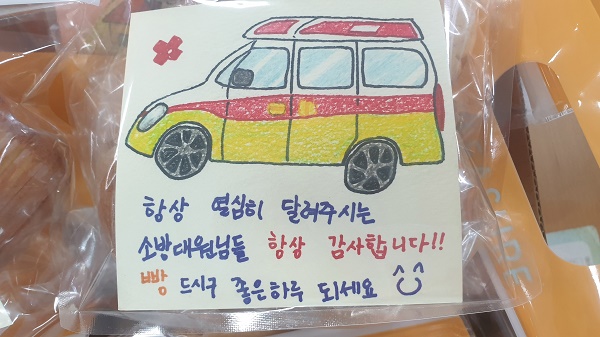 항상 열심히 달려주시는
소방대원님들 항상 감사합니다!!
빵 드시구 좋은하루 되세요 ^^